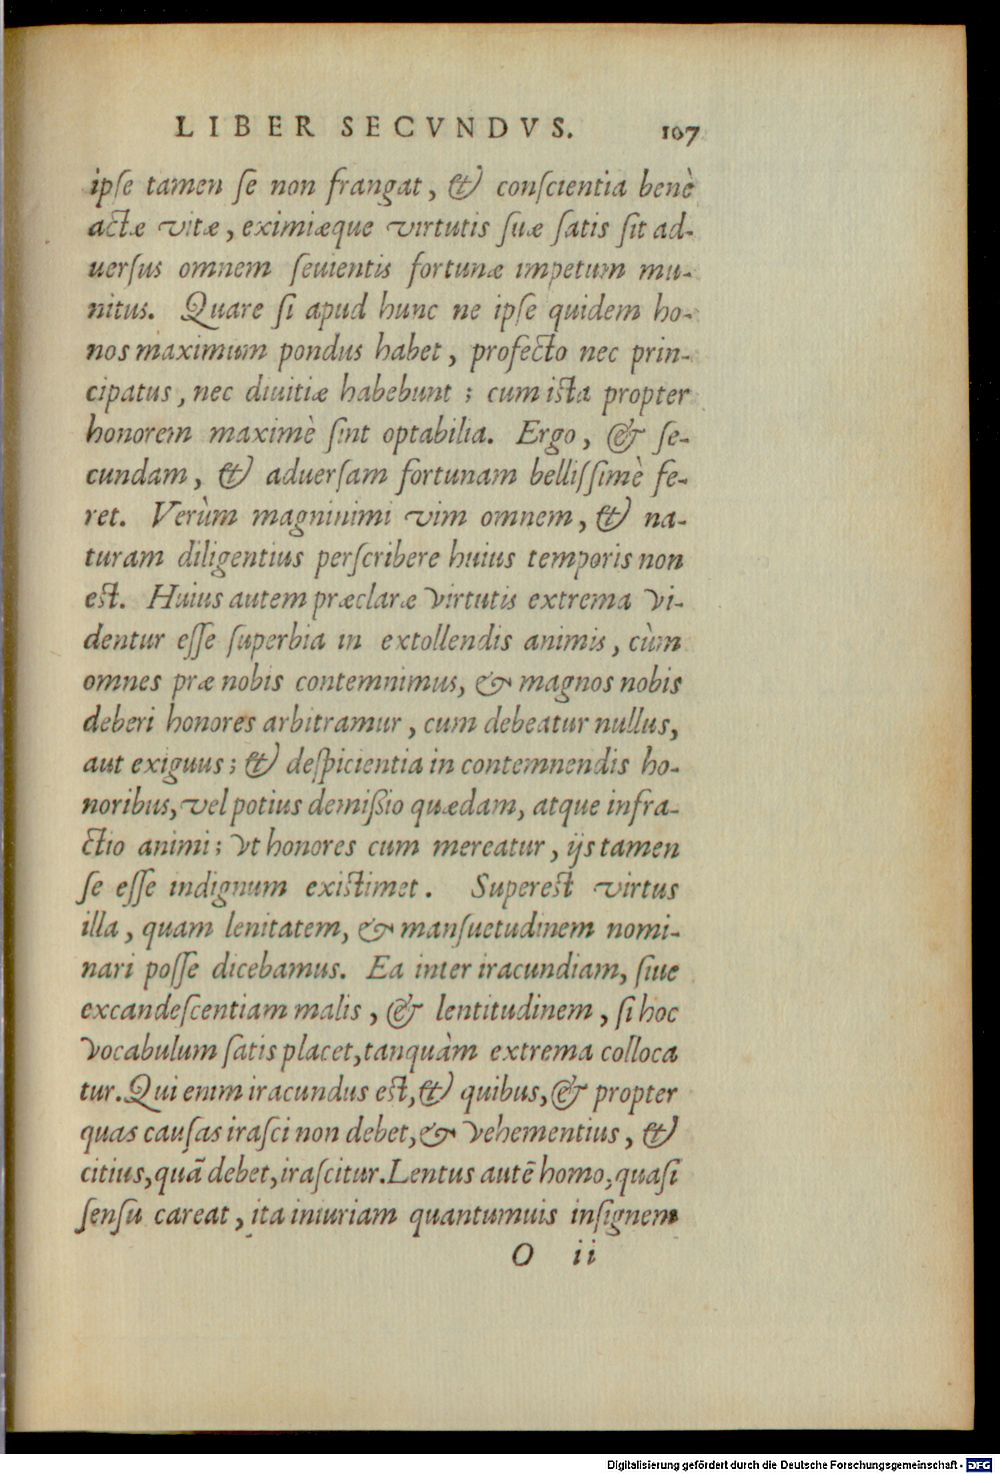 LIBER SECVNDVS. 107
ipſe tamen ſe non frangat, & conſcientia benè
actæ vitæ, eximiæque virtutis ſuæ ſatis ſit ad-
uerſus omnem ſeuientis fortunæ impetum mu-
nitus. Quare ſi apud hunc ne ipſe quidem ho-
nos maximum pondus habet, profecto nec prin-
cipatus, nec diuitiæ habebunt; cum iſta propter
honorem maximè ſint optabilia. Ergo, & ſe-
cundam, & aduerſam fortunam belliſſimè fe-
ret. Verùm magninimi vim omnem, & na-
turam diligentius perſcribere huius temporis non
eſt. Huius autem præclaræ virtutis extrema vi-
dentur eſſe ſuperbia in extollendis animis, cùm
omnes præ nobis contemnimus, & magnos nobis
deberi honores arbitramur, cum debeatur nullus,
aut exiguus; & deſpicientia in contemnendis ho-
noribus, vel potius demißio quædam, atque infra-
ctio animi; vt honores cum mereatur, ijs tamen
ſe eſſe indignum exiſtimet. Supereſt virtus
illa, quam lenitatem, & manſuetudinem nomi-
nari poſſe dicebamus. Ea inter iracundiam, ſiue
excandeſcentiam malis, & lentitudinem, ſi hoc
vocabulum ſatis placet, tanquàm extrema colloca
tur. Qui enim iracundus eſt, & quibus, & propter
quas cauſas iraſci non debet, & vehementius, &
citius, quã debet, iraſcitur. Lentus autẽ homo, quaſi
ſenſu careat, ita iniuriam quantumuis inſignem
O ii
Digitalisierung gefördert durch die Deutsche Forschungsgemeinschaft - DFG